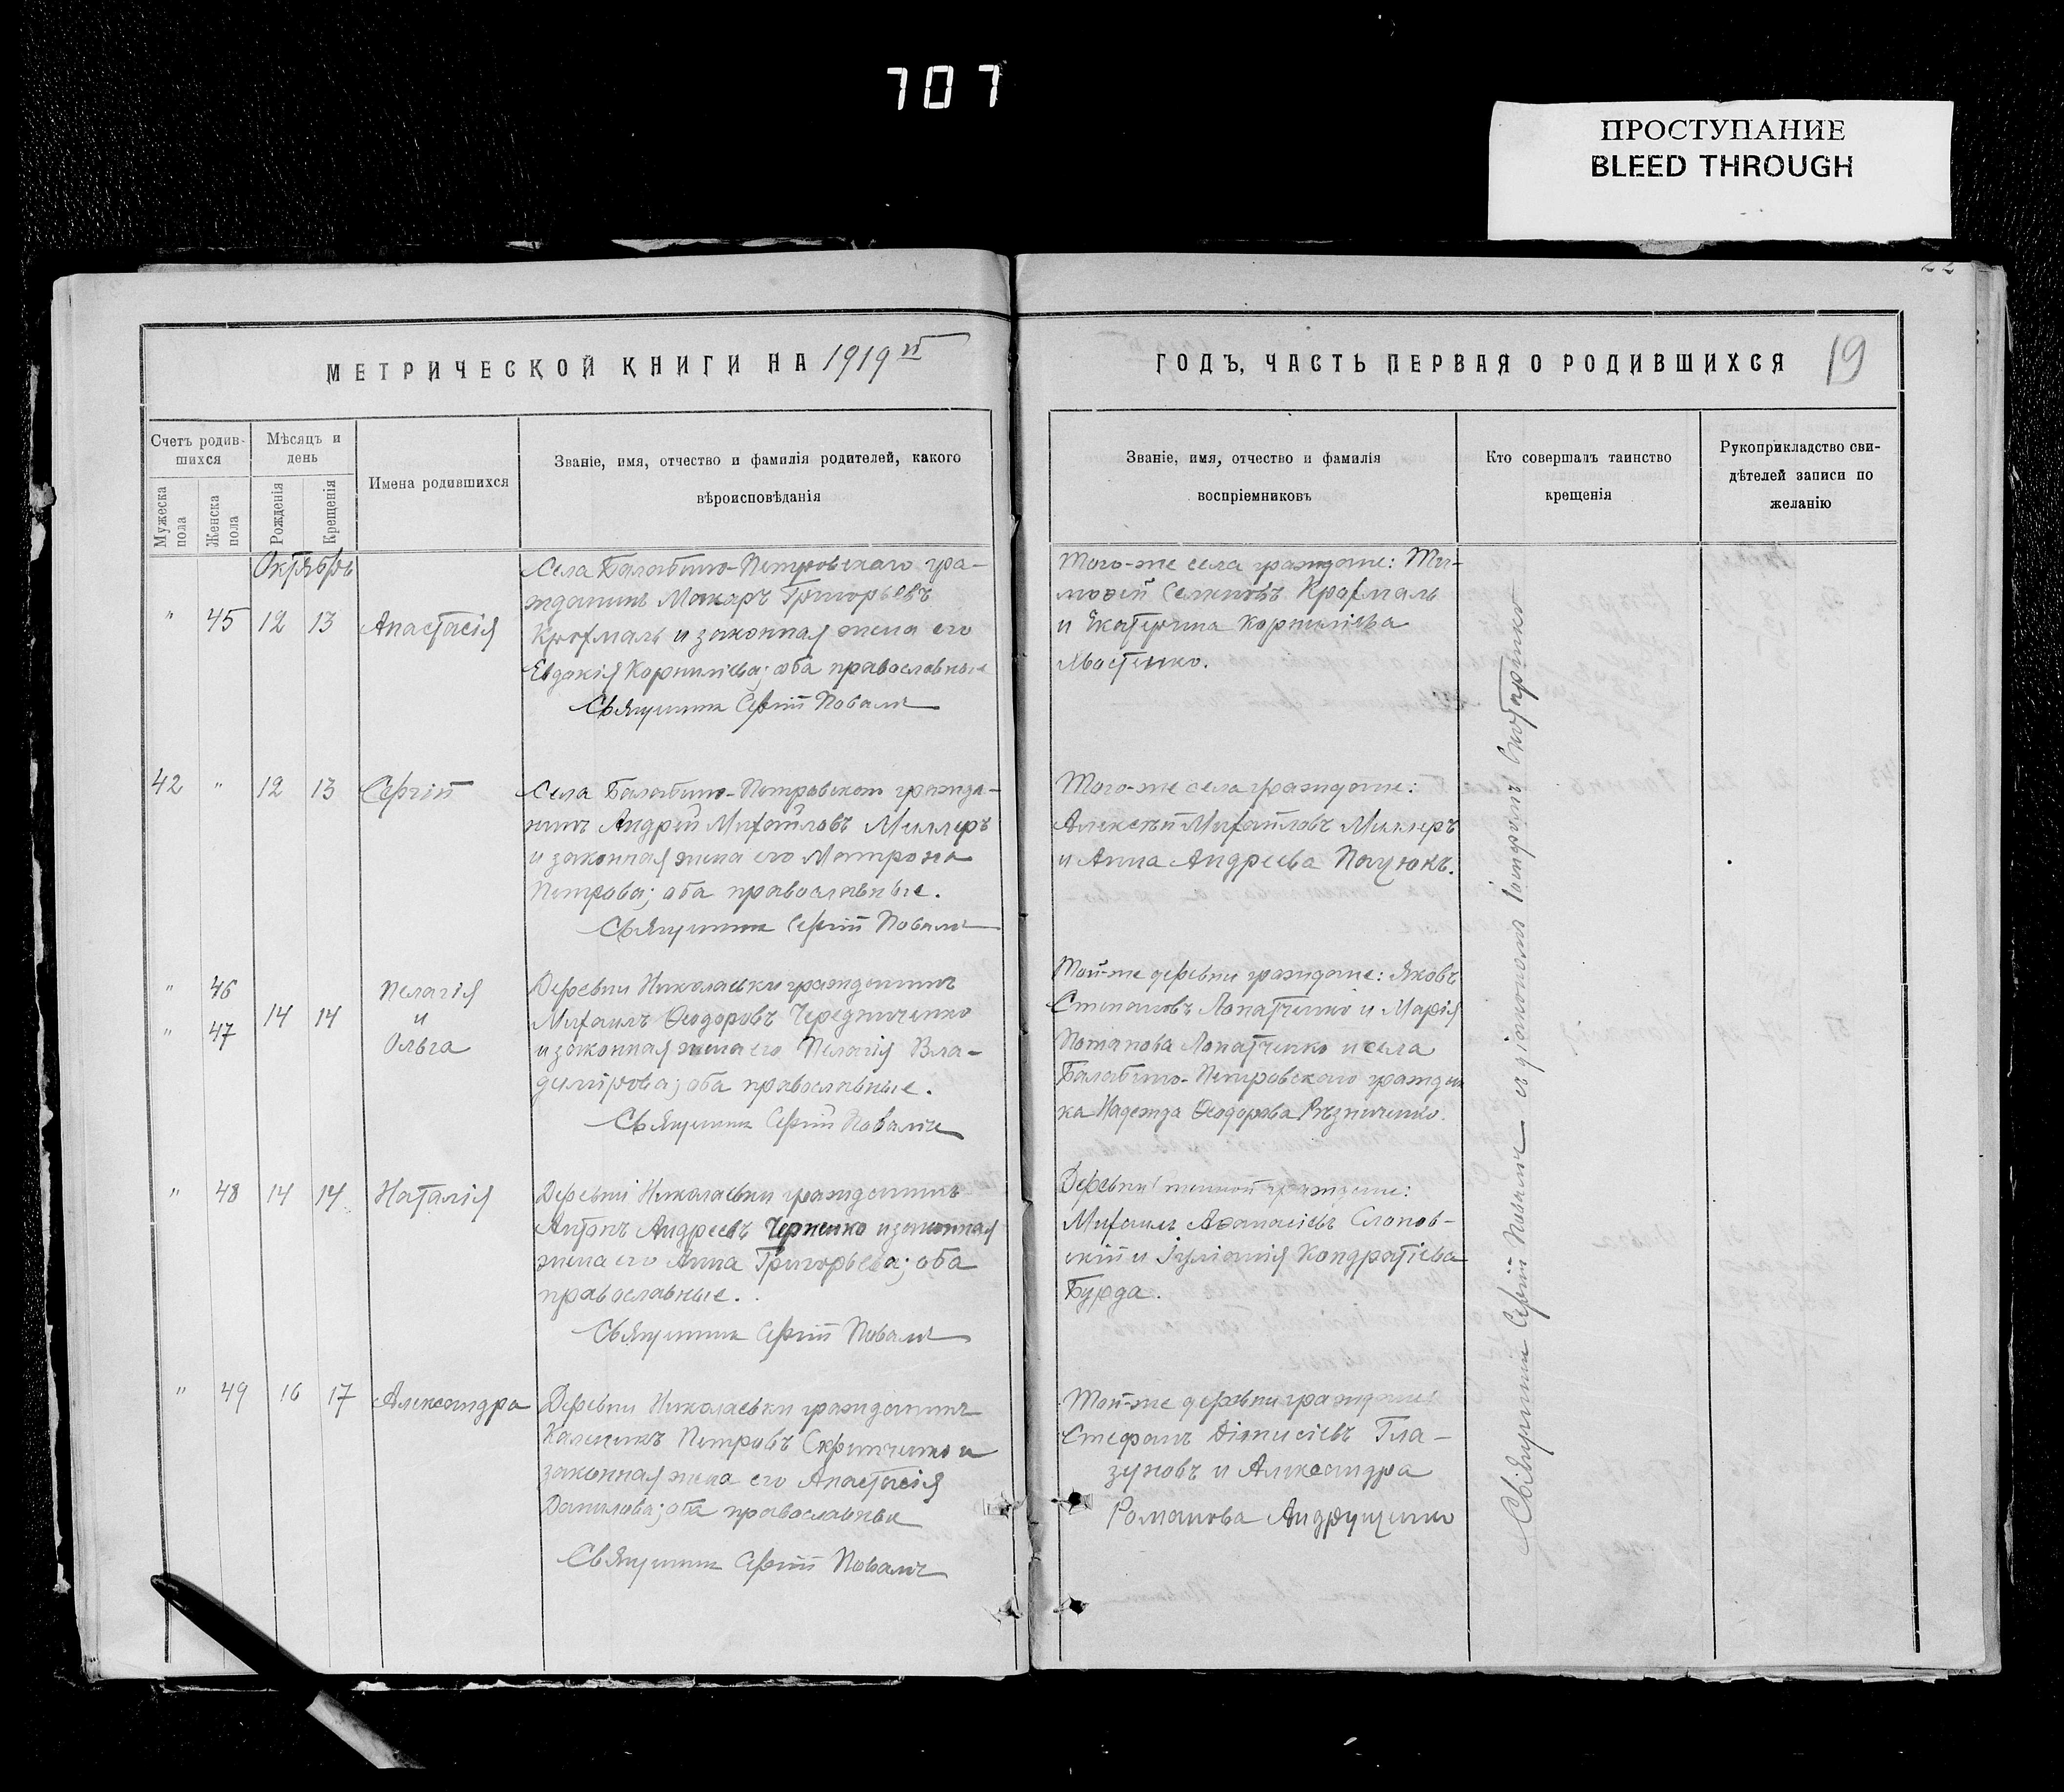 707
ПРОСТУПАНИЕ
BLEED THROUGH
МЕТРИЧЕСКОЙ КНИГИ НА 1919 й
Счетъ родив-
шихся
Мужеска пола
Женска пола
Мѣсяцъ и
день
Рожденія
Крещенія
Имена родившихся
Званіе, имя, отчество и фамилія родителей, какого
вѣроисповѣданія
Октябрь
" 45 12 13 Анастасія
Села Балабино-Петровскаго гра-
жданинъ Макаръ Григорьевъ
Крохмаль и законная жена его
Евдокія Корнилієва; оба православные
Священник Сергій Повалий
42 " 12 13 Сергій
Села Балабино-Петровскаго гражда-
нинъ Андрей Михайловъ Миллеръ
и законная жена его Матрона
Петрова; оба православные.
Священник Сергій Повалий
" 46
" 47
14 14
Пелагія
и
Ольга
Деревни Николаевки гражданинъ
Михаилъ Ѳеодоровъ Чередниченко
и законная жена его Пелагія Вла-
димірова; оба православные.
Священник Сергій Повалий
" 48 14 14 Наталія
Деревни Николаевки гражданинъ
Антонъ Андреевъ Черненко и законная
жена его Анна Григорьева; оба
православные.
Священник Сергій Повалий
" 49 16 17 Александра
Деревни Николаевки гражданинъ
Калиникъ Петровъ Скрипченко и
законная жена его Анастасія
Данилова; оба православные
Священник Сергій Повалий
22
ГОДЪ, ЧАСТЬ ПЕРВАЯ О РОДИВШИХСЯ
19
Званіе, имя, отчество и фамилія
воспріемниковъ
Кто совершалъ таинство
крещенія
Рукоприкладство сви-
дѣтелей записи по
желанію
Того-же села граждане: Ти-
моѳей Семеновъ Крохмаль
и Екатерина Корнилієва
Хвостенко.
Того-же села граждане:
Алексѣй Михайловъ Миллеръ
и Анна Андреева Пацюкъ.
Той-же деревни граждане: Яковъ
Степановъ Лопатченко и Марія
Потапова Лопатченко и села
Балабино-Петровскаго граждан
ка Надежда Ѳеодорова Рѣзниченко.
Деревни граждане:
Михаилъ Аѳанасіевъ Слонов-
скій и Іуліанія Кондратіева
Бурда.
Той-же деревни граждане
Стефанъ Діонисіевъ Гла-
зуновъ и Александра
Романова Андрущенко
Священник Сергій Повалий съ діакономъ Скотаренко